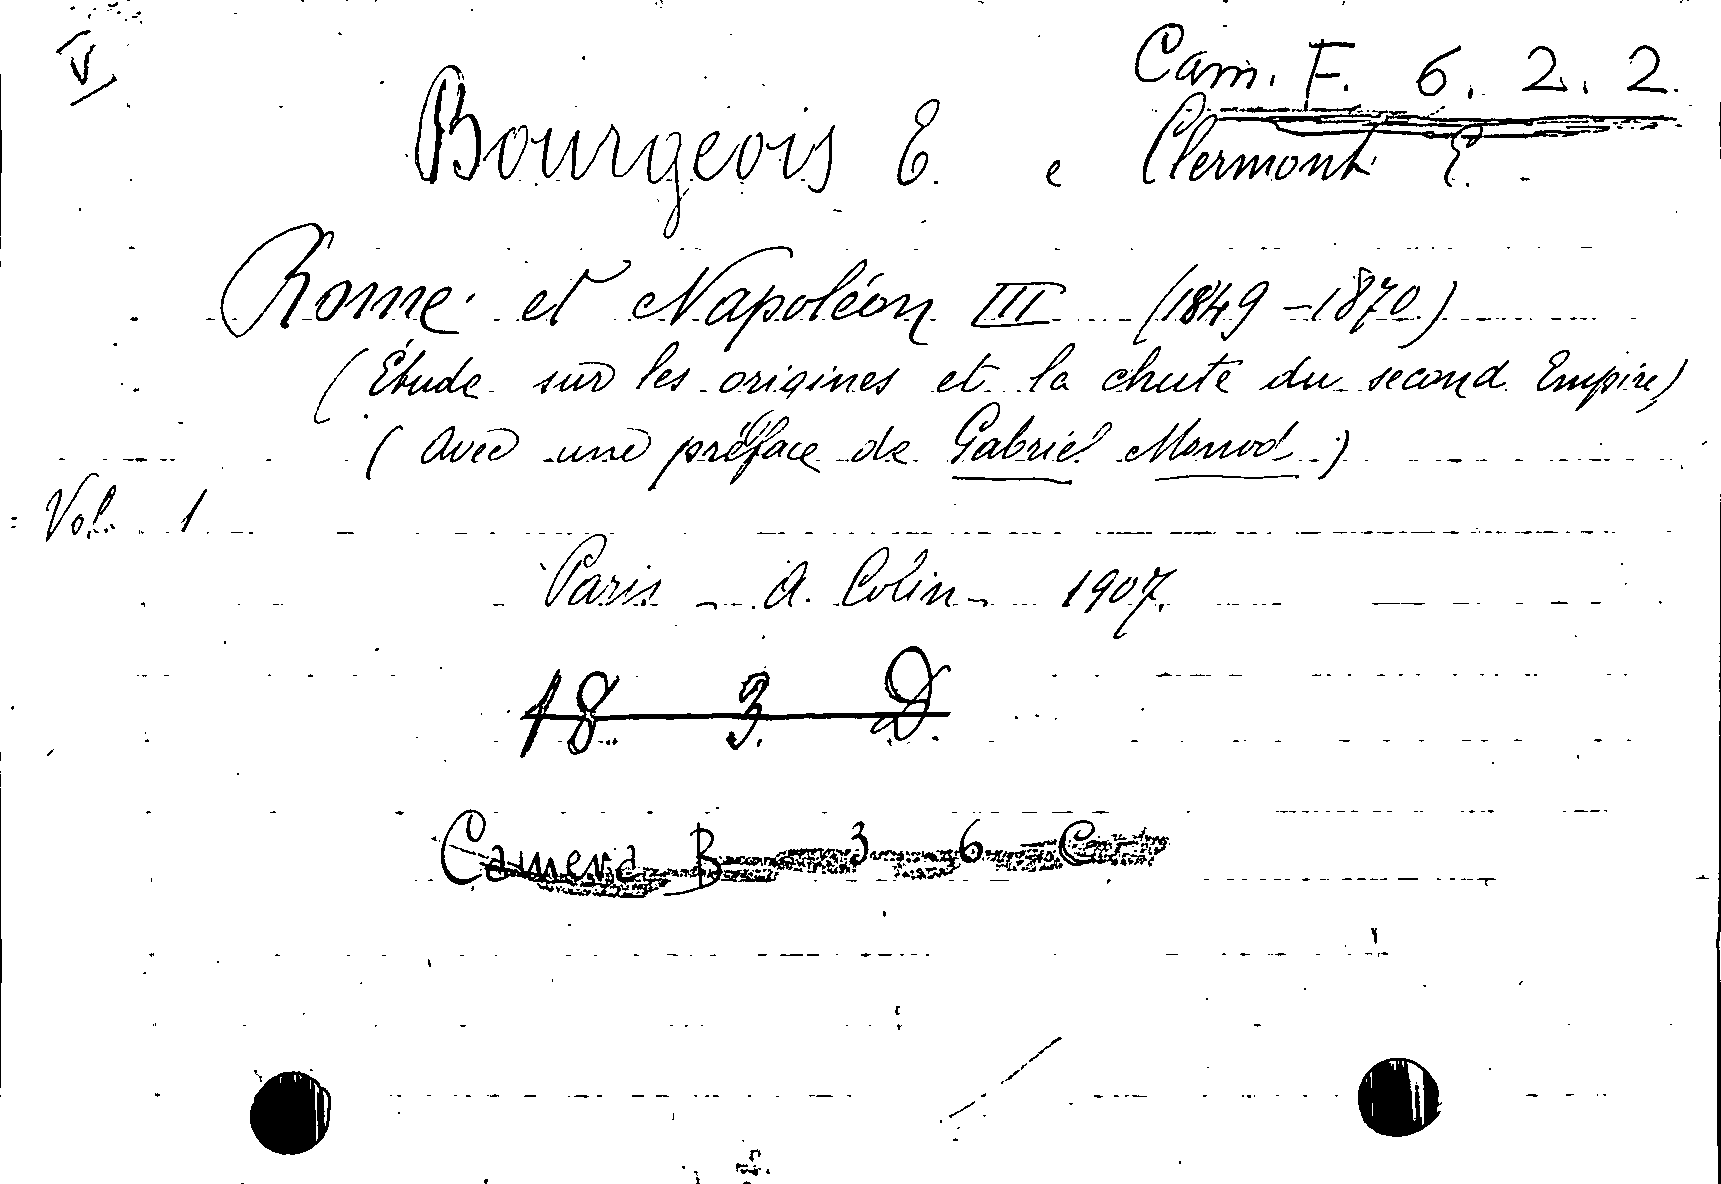 V
Cam. F. 6. 2. 2.
Bourgeois E. e Clermont E.
Rome et Napoléon III (1849-1870)
(Étude sur les origines et la chute du second Empire)
(avec une préface de Gabriel Monod)
Vol. 1
Paris - A. Colin - 1907.
18 3 D
Camera B 3 6 C